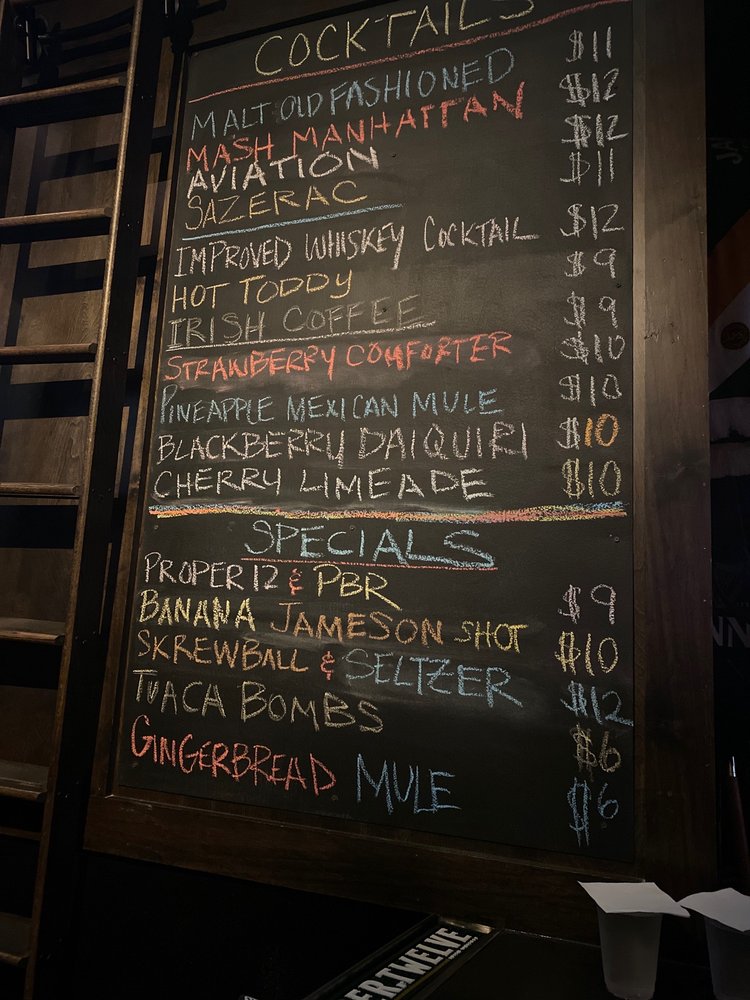 COCKTAILS
MALT OLD FASHIONED $11
MASH MANHATTAN $12
AVIATION $12
SAZERAC $11
IMPROVED WHISKEY COCKTAIL $12
HOT TODDY $9
IRISH COFFEE $9
STRAWBERRY COMFORTER $10
PINEAPPLE MEXICAN MULE $10
BLACKBERRY DAIQUIRI $10
CHERRY LIMEADE $10
SPECIALS
PROPER 12 & PBR $9
BANANA JAMESON SHOT $10
SKREWBALL & SELTZER $12
TUACA BOMBS $6
GINGERBREAD MULE $6
ER.TWELVE